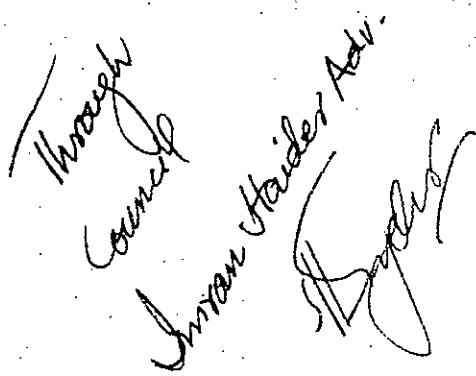 Through
Council
Imran Haider Adv.